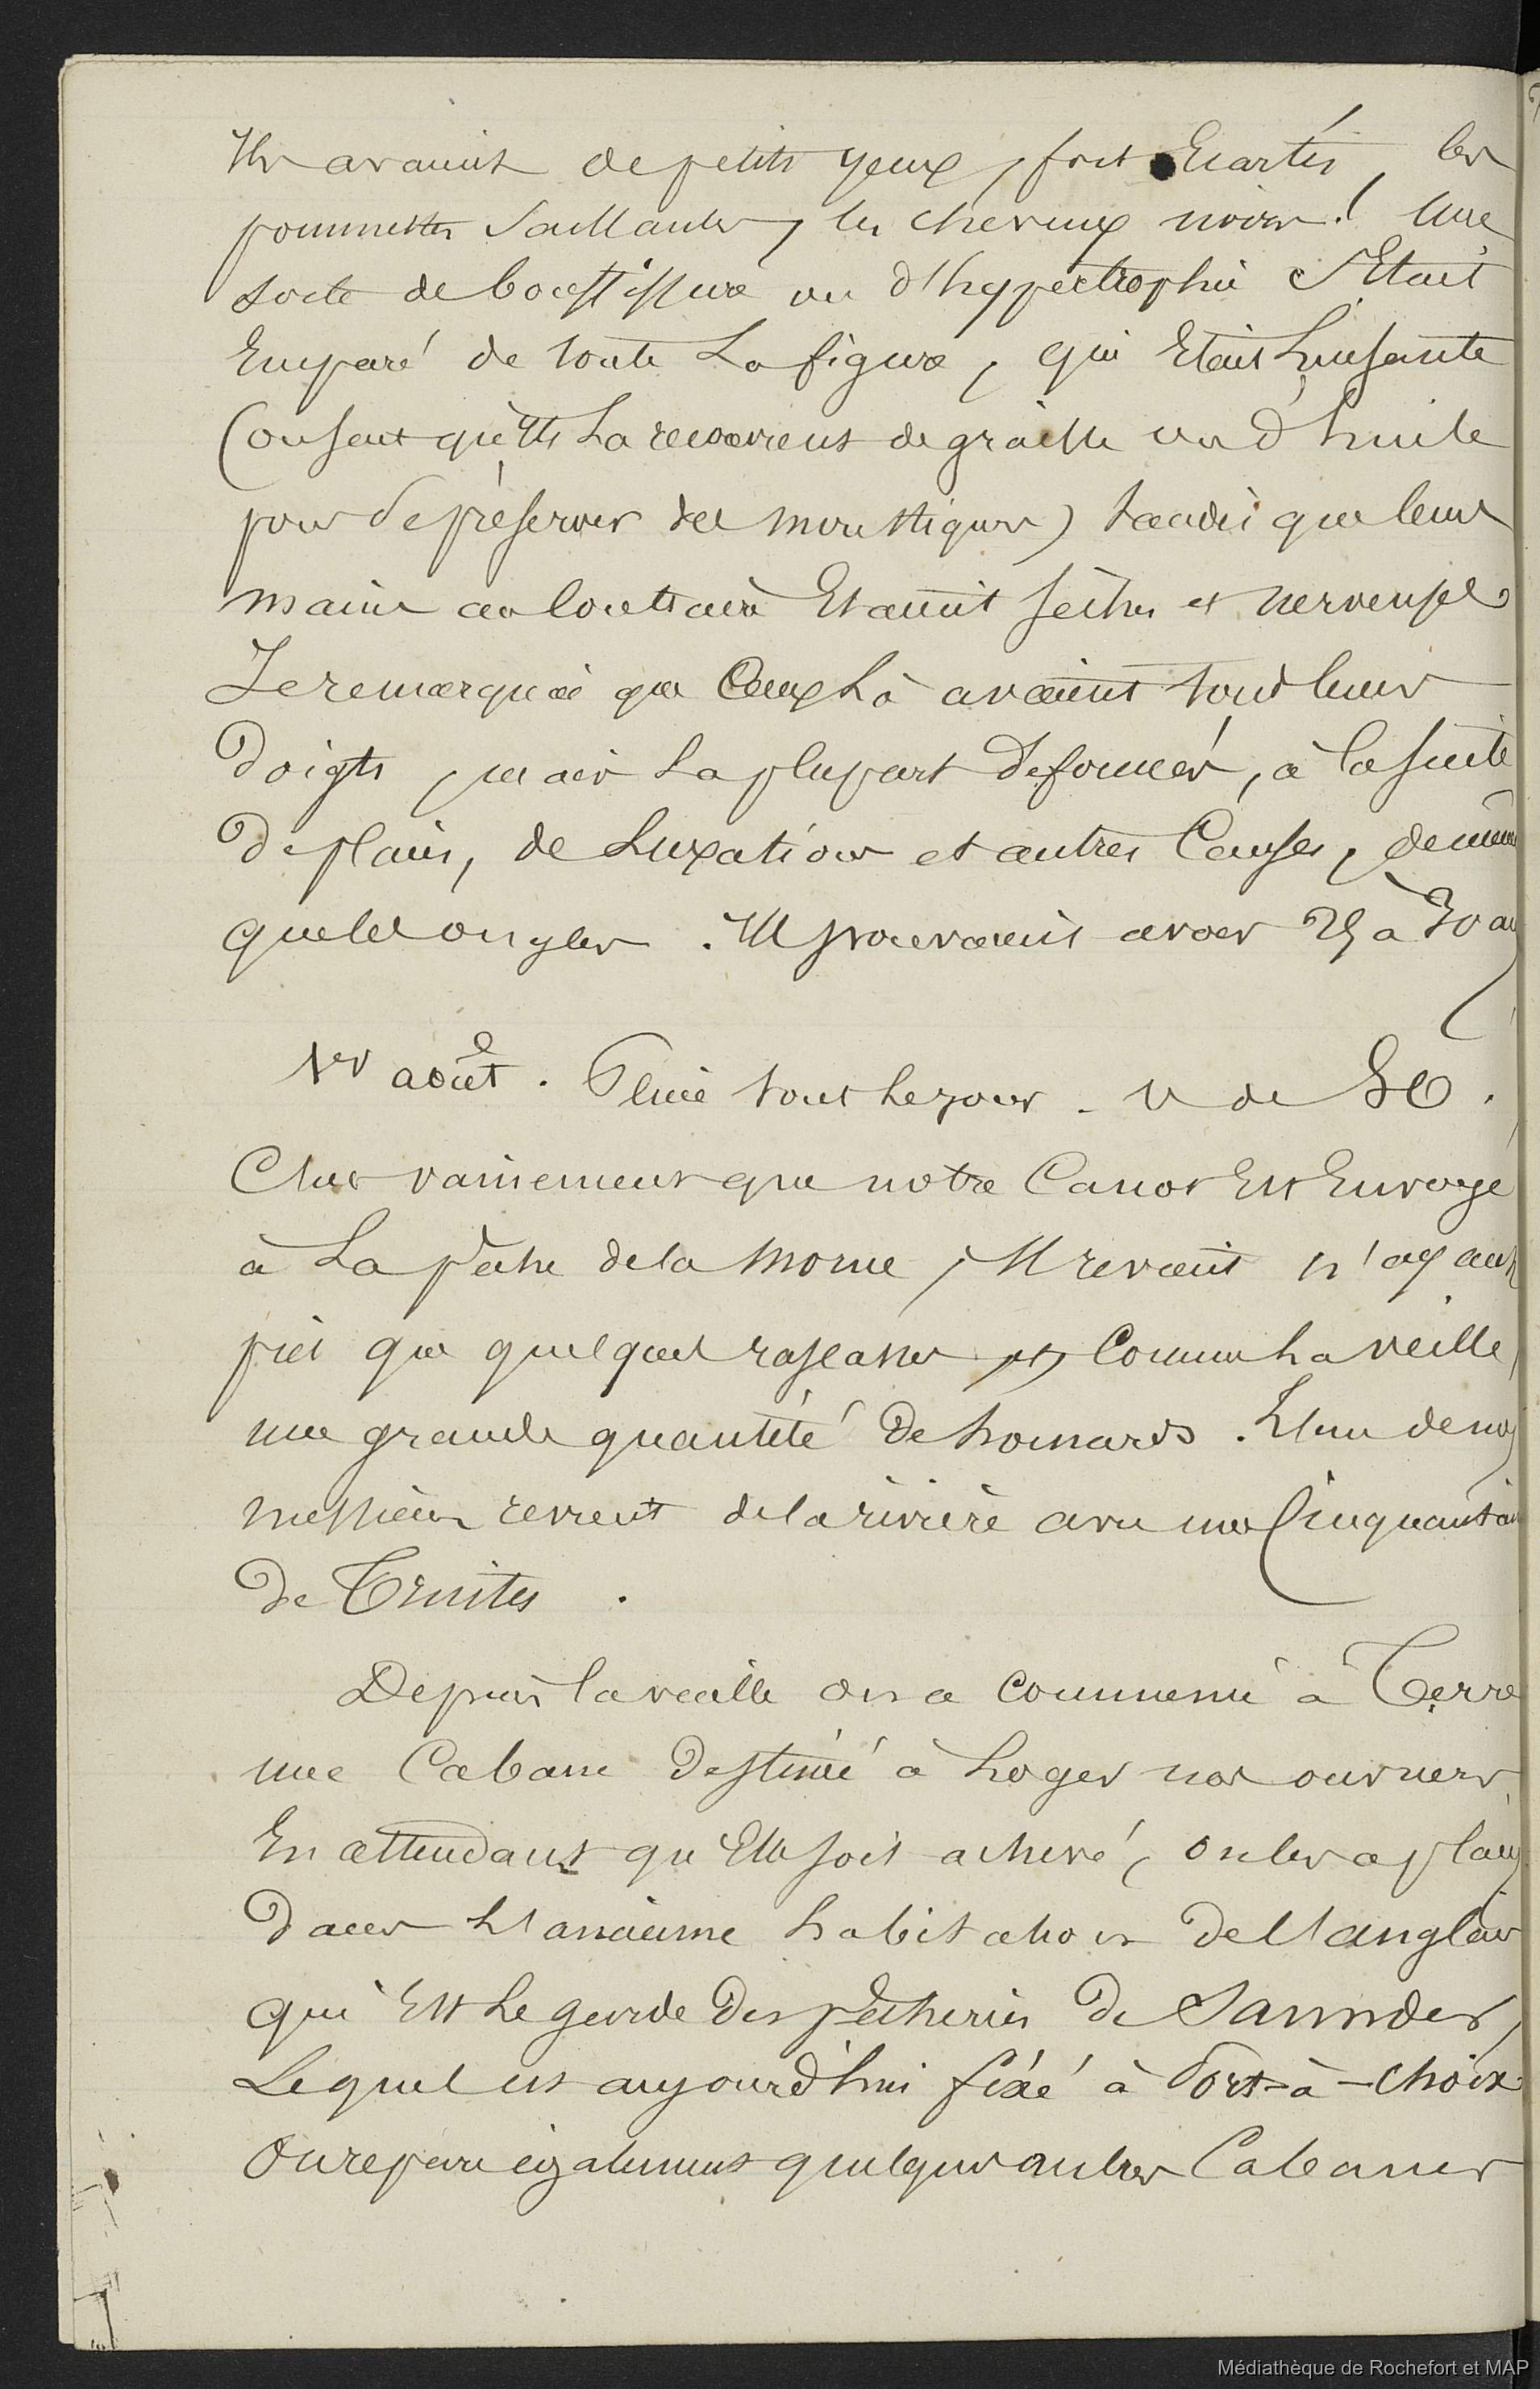 Ils avaient de petits yeux, fort Ecartés, les
pommettes Saillantes, les cheveux noirs! Une
sorte de bouffissure ou d'hypertrophie s'Etait
Emparé de toute La figure, qui Etait Luisante
(on sent qu'ils La recouvrent de graisse ou d'huile
pour se préserver des moustiques) tandis que leurs
mains au contraire Etaient sèches et nerveuses
Je remarquai que Ceux Là avaient tous leurs
doigts, mais La plupart déformés, à la suite
de plaies, de Luxations et autres Causes, de même
que les ongles. Ils pouvaient avoir 25 à 30 ans
1er août. Pluie tout le jour. V de SO.
C'est vainement que notre Canot Est Envoyé
à La pêche de la morue, Il revient n'ayant
pris que quelques rascasses et, Comme La veille,
une grande quantité de homards. L'un de nos
messieurs revient de la rivière avec une Cinquantaine
de Truites.
Depuis la veille on a commencé à Terre
une Cabane destinée à Loger nos ouvriers
En attendant qu'Elle soit achevé, on les a placés
dans L'ancienne habitation de l'anglais
qui Est Le garde des pêcheries de Saunders,
Lequel est aujourd'hui fixé à Port-à-Choix
On repare également quelques autres Cabanes
Médiathèque de Rochefort et MAP